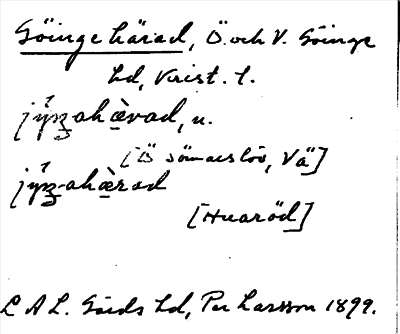 Göinge härad, Ö. och V. Göinge
hd, Krist. l.
jy̋ŋahæ̀rad, u.
[Ö Sönnarslöv, Vä]
jy̋ŋahæ̀rad
[Huaröd]
L A L. Gärds hd, Per Larsson 1899.